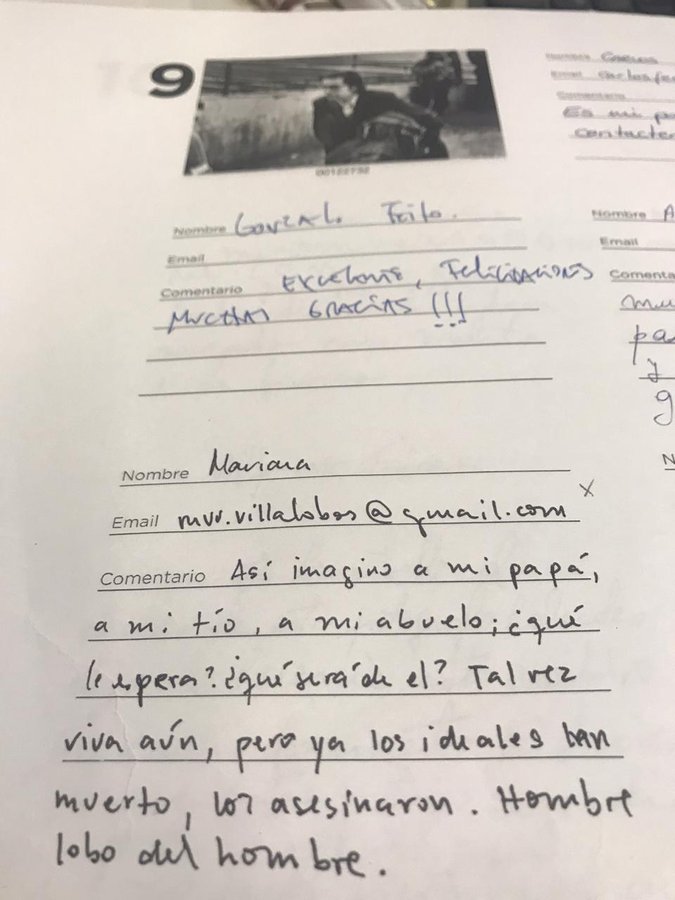 9
00122732
Nombre Gonzalo Feito.
Email
Comentario Excelente, Felicitaciones
Muchas Gracias !!!
Nombre
Email
Comentario
Es mi
Nombre A
Email
Comenta
mu
pa
y
g
N
Nombre Mariana
Email mvv.villalobos@gmail.com x
Comentario Así imagino a mi papá,
a mi tío, a mi abuelo; ¿qué
le espera? ¿qué será de el? Tal vez
viva aún, pero ya los ideales han
muerto, los asesinaron. Hombre
lobo del hombre.